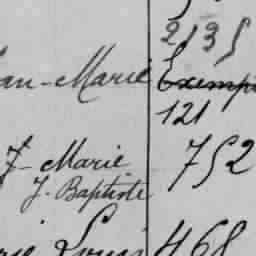 2135
an-Marie Exemp
121
J- Marie 752
J. Baptiste
rie Louis 468